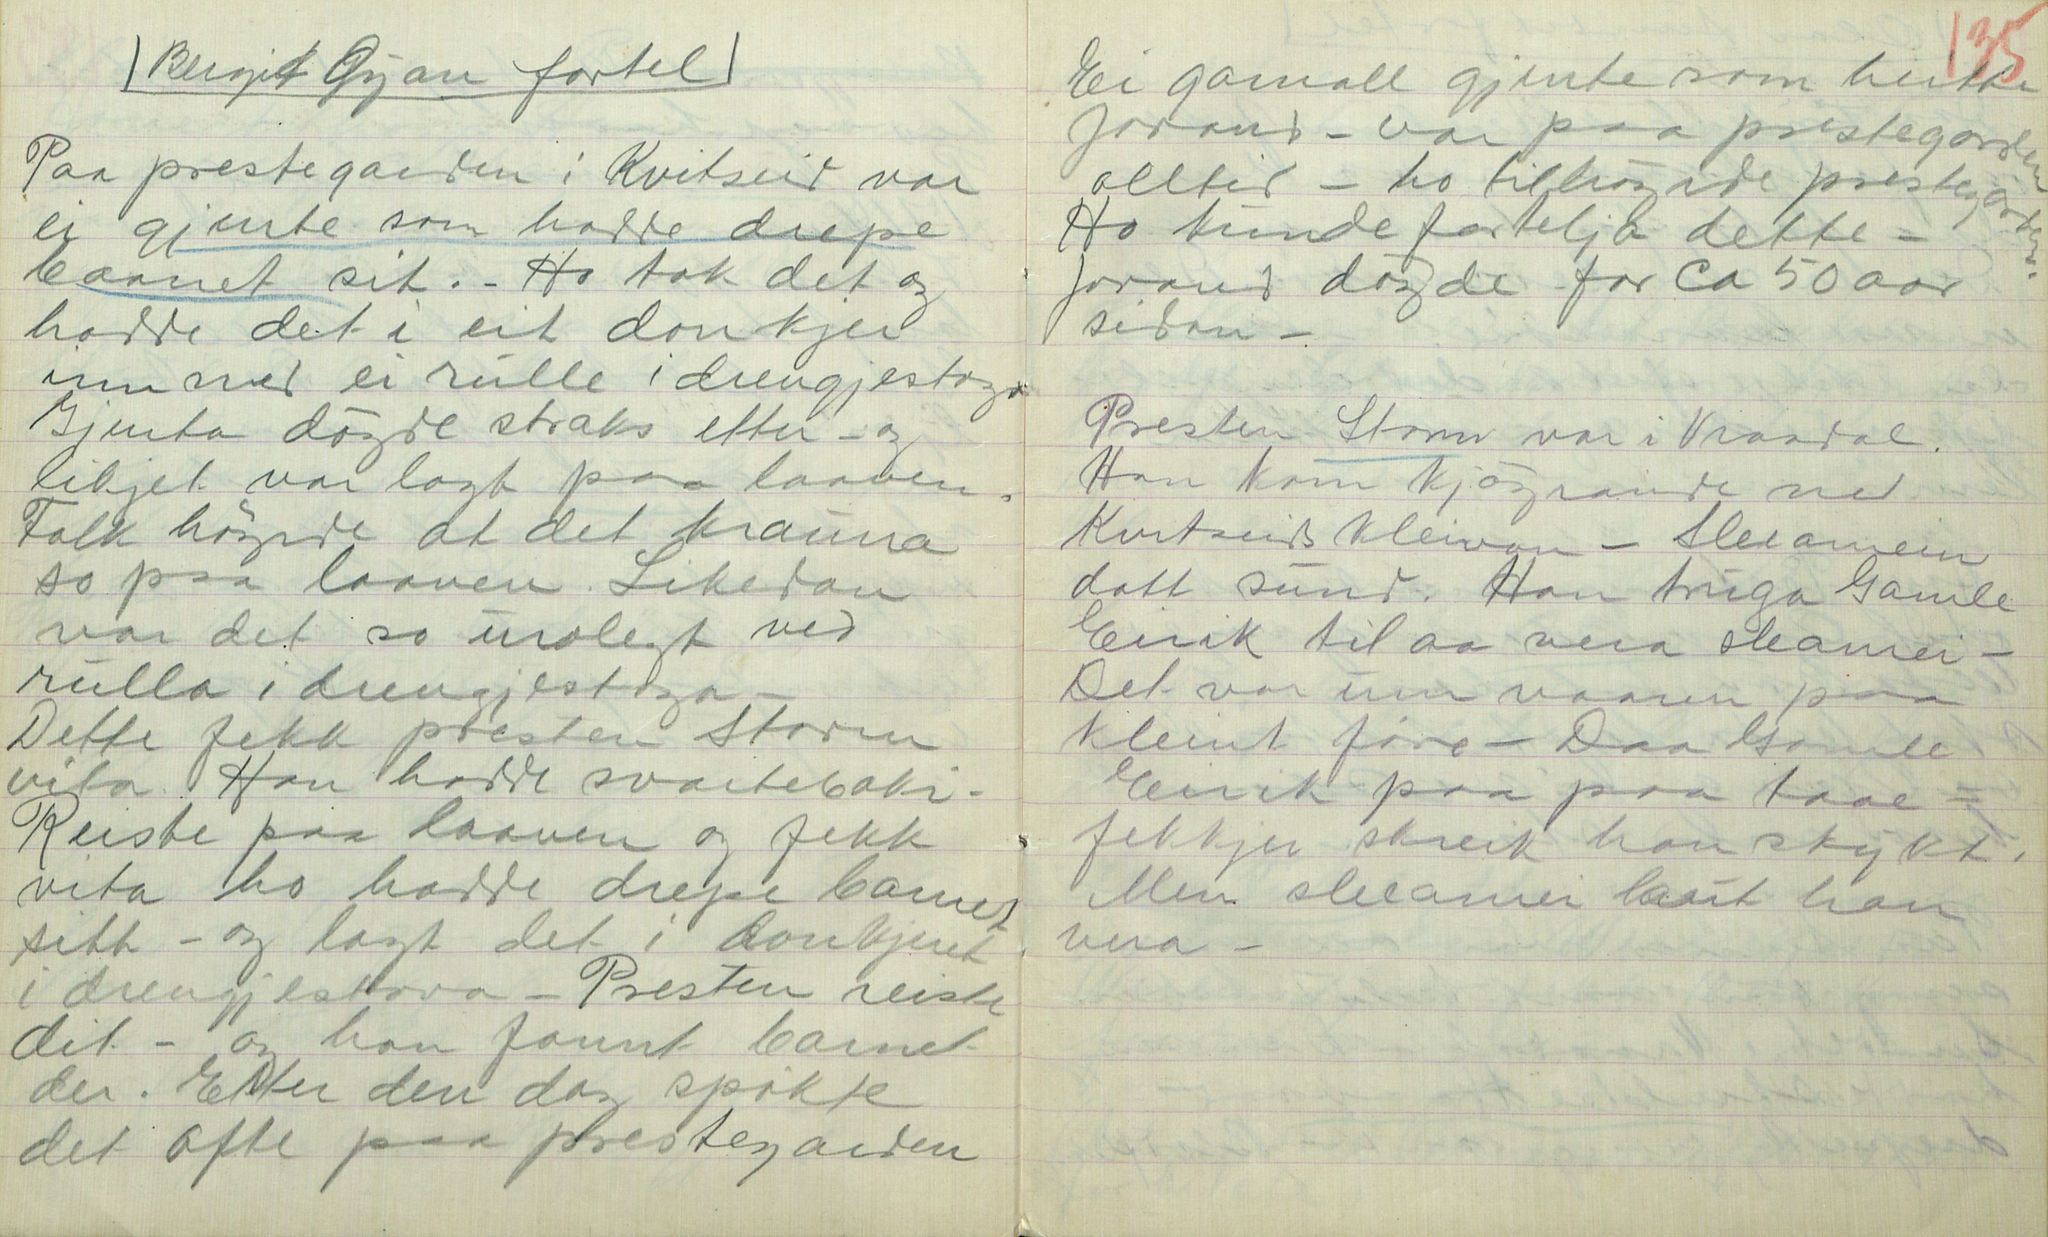 Bergit Öyan fortel
Paa prestegarden i Kvitseid var
ei gjente som hadde drepe
baanet sit. - Ho tok det og
hadde det i eit donkjer
inn med ei rulle i drengjestoga
Gjenta döyde straks etter - og
likjet var lagt paa laaven.
Folk höyrde at det krauna
so paa laaven. Likedan
var det so urolegt ved
rulla i drengjestoga -
Dette fekk presten Storm
vita. Han hadde svarteboki -
Reiste paa laaven og fekk
vita ho hadde drepe barnet
sitt - og lagt det i donkjeret
i drengjestova - Presten reiste
dit - og han fannt barnet
der. Etter den dag spökte
det ofte paa prestegarden
135
Ei gamall gjente som heitte
Jorand - var paa prestegarden
alltid - ho tilhöyrde prestegarden.
Ho kunde fortelja dette -
Jorand döyde for ca 50 aar
sidan -
Presten Storm var i Vraadal.
Han kom kjöyrande ned
Kvitseids kleivan - Sleamein
datt sund. Han truga Gamle
Eirik til aa vera sleamei -
Det var um vaaren paa
kleint före - Daa Gamle
Eirik paa paa taae -
fekkjer skreik han stykt.
Men sleamei laut han
vera -